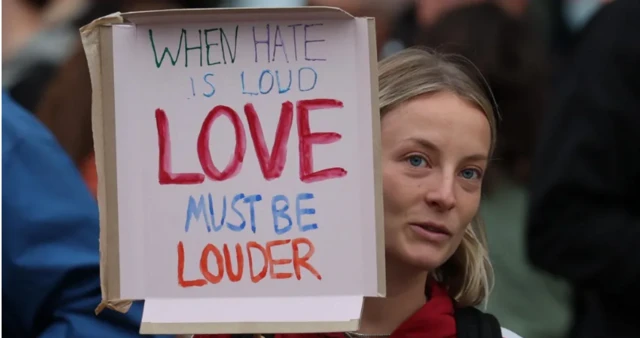 WHEN HATE
IS LOUD
LOVE
MUST BE
LOUDER